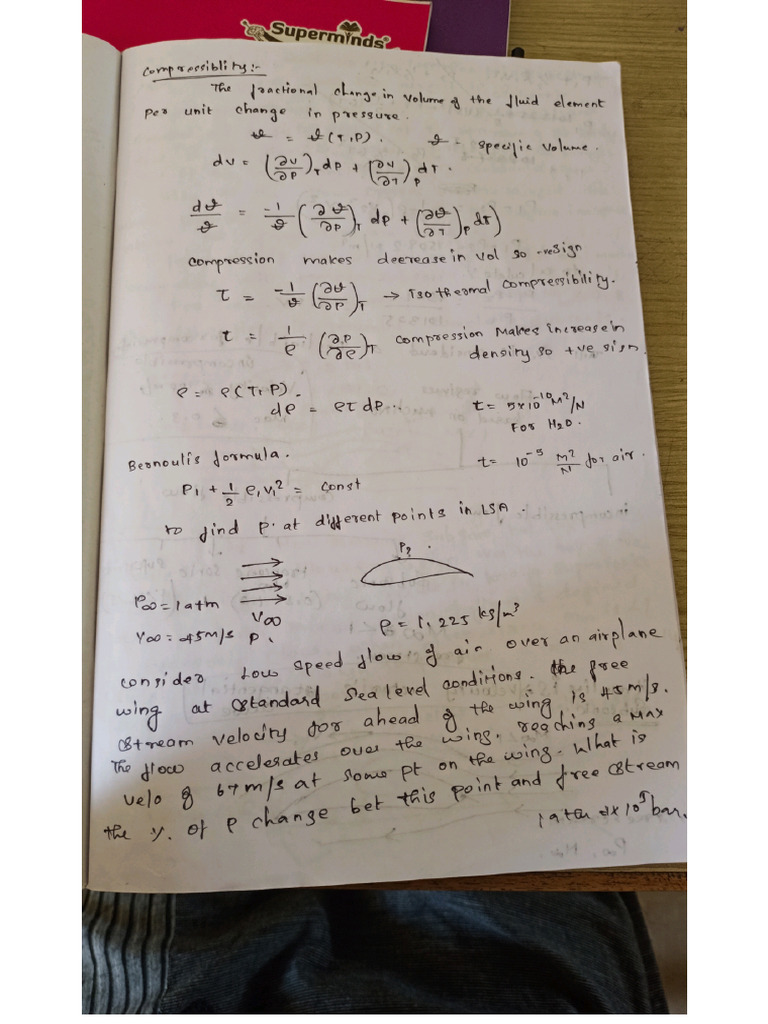 Superminds
Compressiblity:-
The fractional change in volume of the fluid element
per unit change in pressure.
ϑ = ϑ(T,P). ϑ - specific volume.
dv = (∂v/∂P)_T dp + (∂v/∂T)_P dT.
dϑ/ϑ = -1/ϑ (∂ϑ/∂P)_T dp + (∂ϑ/∂T)_P dT)
compression makes decrease in vol so -ve sign
τ = -1/ϑ (∂ϑ/∂P)_T → Isothermal compressibility.
τ = 1/ρ (∂P/∂ρ)_T compression makes increase in
density so +ve sign.
ρ = ρ(T,P).
dρ = ρτ dp.. τ = 5×10^-10 M²/N
For H2O.
Bernoulis formula. τ = 10^-5 M²/N for air.
P₁ + 1/2 ρ₁v₁² = const
to find P. at different points in LSA.
P?
P∞ = 1 atm V∞ ρ = 1.225 kg/m³
V∞ = 45 m/s P.
consider low speed flow of air over an airplane
wing at standard sea level conditions. the free
stream velocity for ahead of the wing is 45 m/s.
The flow accelerates over the wing, reaching a max
velo of 67 m/s at some pt on the wing. What is
the %. of ρ change bet this point and free stream